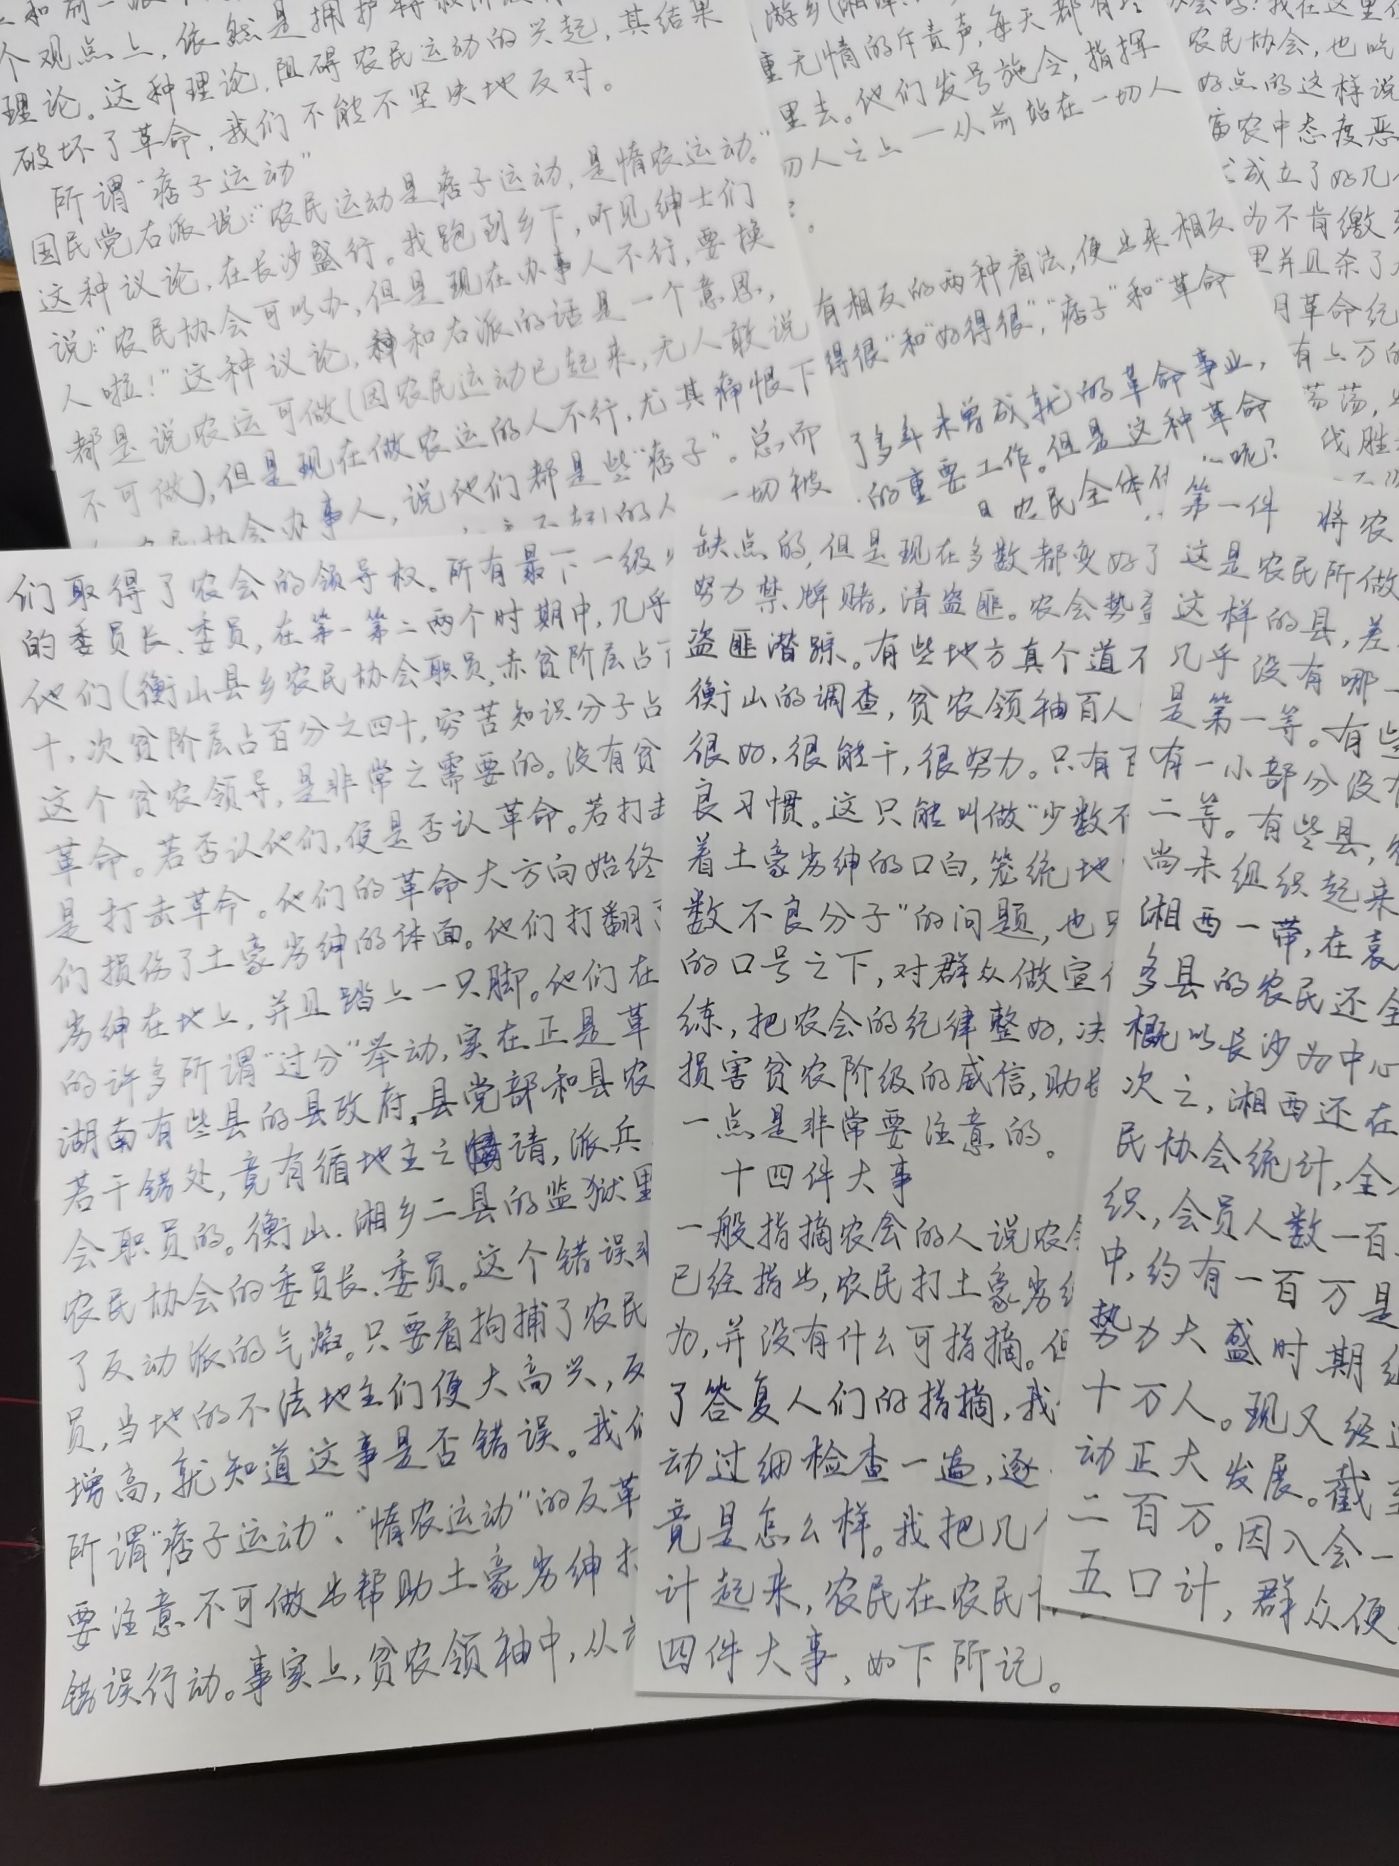 个观点上,依然是拥护特
理论。这种理论,阻碍农民运动的兴起,其结果
破坏了革命,我们不能不坚决地反对。
所谓“痞子运动”
国民党右派说:“农民运动是痞子运动,是惰农运动。”
这种议论,在长沙盛行。我跑到乡下,听见绅士们
说:“农民协会可以办,但是现在办事人不行,要换
人啦!”这种议论,和右派的话是一个意思,
都是说农运可做(因农民运动已起来,无人敢说
不可做),但是现在做农运的人不行,尤其痛恨下
农民协会办事人,说他们都是些“痞子”。总而
一切被
重无情的斥责声,每天都有
里去。他们发号施令,指挥
切人之上——从前站在一切人
有相反的两种看法,便出来相反
得很”和“好得很”,“痞子”和“革命
了多年未曾成就的革命事业,
的重要工作。但是这种革命
农民全体
呢?
我在这里
农民协会,也吃
好点的这样说
富农中态度恶
成立了好几
为不肯缴
里并且杀了
月革命纪
有上万的
荡荡,
伐胜
们取得了农会的领导权。所有最下一级
的委员长、委员,在第一第二两个时期中,几乎
他们(衡山县乡农民协会职员,赤贫阶层占
十,次贫阶层占百分之四十,穷苦知识分子占
这个贫农领导,是非常之需要的。没有贫
革命。若否认他们,便是否认革命。若打击
是打击革命。他们的革命大方向始终
们损伤了土豪劣绅的体面。他们打翻了
劣绅在地上,并且踏上一只脚。他们在
的许多所谓“过分”举动,实在正是革
湖南有些县的县政府,县党部和县农
若干错处,竟有循地主之请,派兵
会职员的。衡山、湘乡二县的监狱里
农民协会的委员长、委员。这个错误
了反动派的气焰。只要看拘捕了农民
员,当地的不法地主们便大高兴,反
增高,就知道这事是否错误。我们
所谓“痞子运动”、“惰农运动”的反革
要注意不可做出帮助土豪劣绅打
错误行动。事实上,贫农领袖中,从
缺点的,但是现在多数都变好了
努力禁牌赌,清盗匪。农会势
盗匪潜踪。有些地方真个道不
衡山的调查,贫农领袖百人
很好,很能干,很努力。只有百
良习惯。这只能叫做“少数不
着土豪劣绅的口白,笼统地
数不良分子”的问题,也只
的口号之下,对群众做宣
练,把农会的纪律整好,决
损害贫农阶级的威信,助长
一点是非常要注意的。
十四件大事
一般指摘农会的人说农会
已经指出,农民打土豪劣绅
为,并没有什么可指摘。但
了答复人们的指摘,我
动过细检查一遍,逐
竟是怎么样。我把几个
计起来,农民在农民
四件大事,如下所记。
第一件 将农
这是农民所做
这样的县,差
几乎没有哪一
是第一等。有些
有一小部分没有
二等。有些县,
尚未组织起来
湘西一带,在袁
多县的农民还全
概以长沙为中心
次之,湘西还在
民协会统计,全
织,会员人数一百
中,约有一百万是
势力大盛时期
十万人。现又经过
动正大发展。截至
二百万。因入会一
五口计,群众便